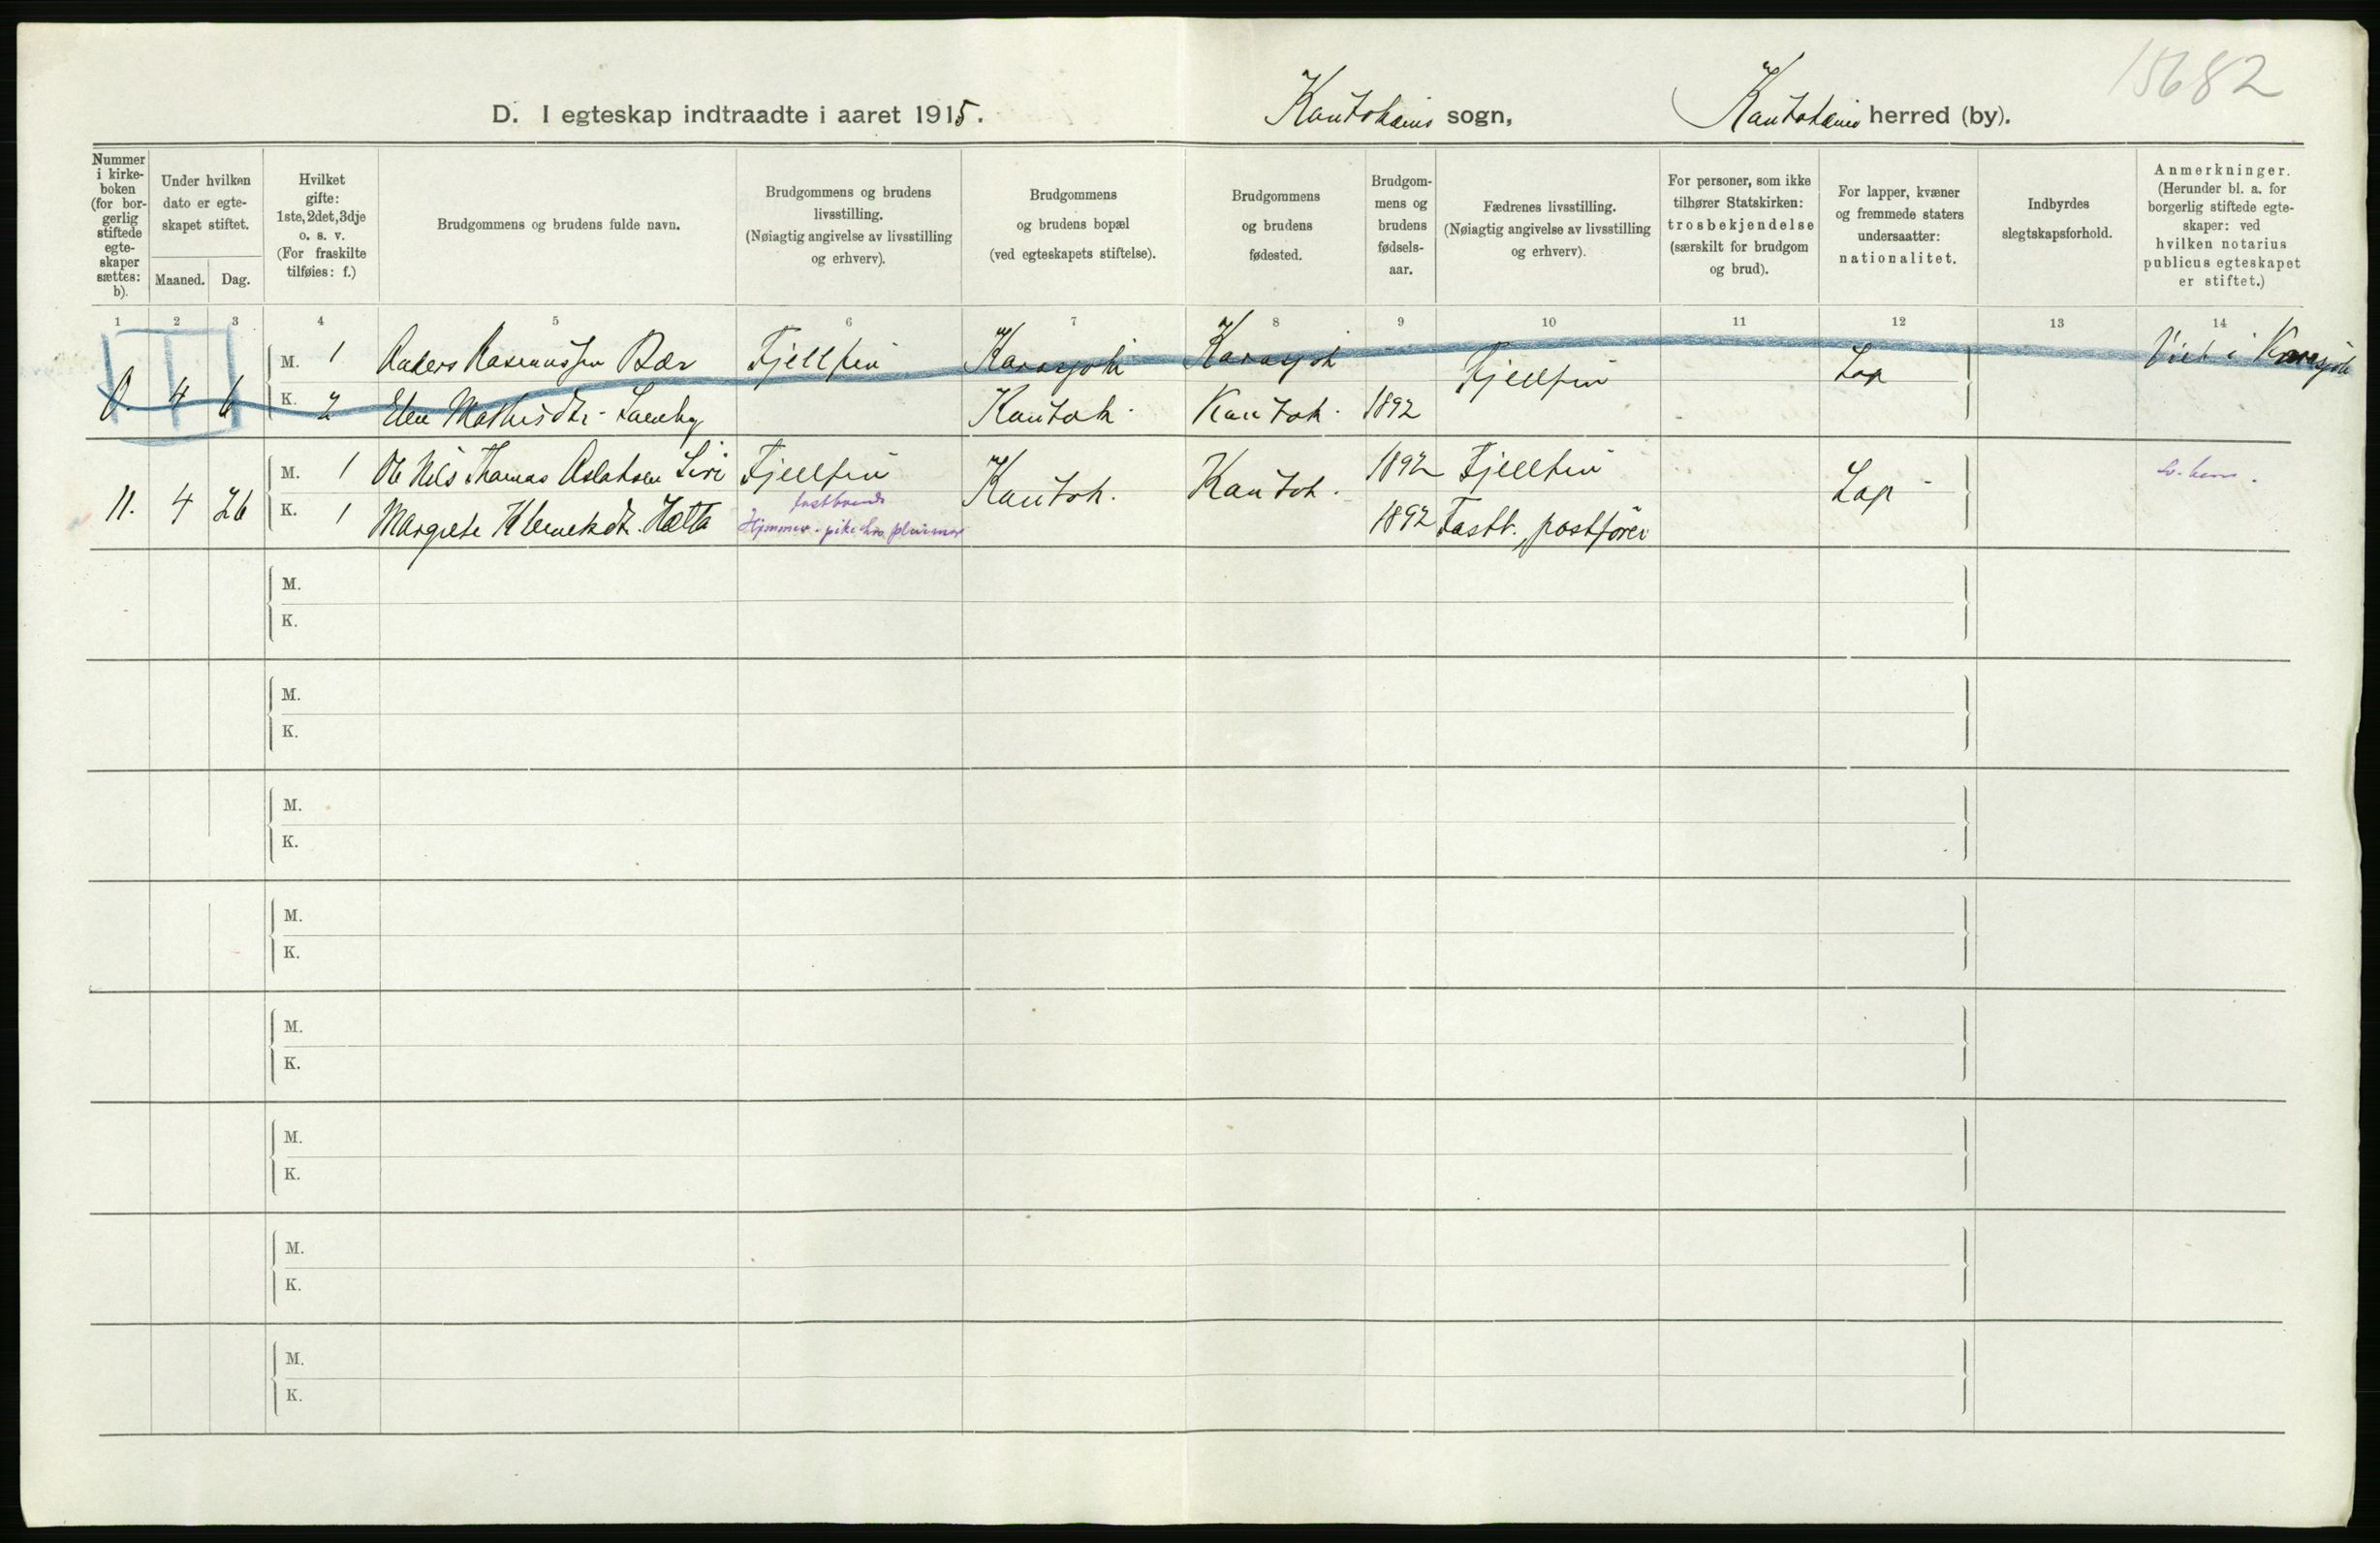 15682
D. I egteskap indtraadte i aaret 1915.
Kautokeino sogn,
Kautokeino herred (by).
Nummer i kirke-boken (for bor-gerlig stiftede egte-skaper sættes: b).
Under hvilken dato er egte-skapet stiftet.
Maaned. Dag.
Hvilket gifte: 1ste, 2det, 3dje o. s. v. (For fraskilte tilføies: f.)
Brudgommens og brudens fulde navn.
Brudgommens og brudens livsstilling. (Nøiagtig angivelse av livsstilling og erhverv).
Brudgommens og brudens bopæl (ved egteskapets stiftelse).
Brudgommens og brudens fødested.
Brudgom-mens og brudens fødsels-aar.
Fædrenes livsstilling. (Nøiagtig angivelse av livsstilling og erhverv).
For personer, som ikke tilhører Statskirken: trosbekjendelse (særskilt for brudgom og brud).
For lapper, kvæner og fremmede staters undersaatter: nationalitet.
Indbyrdes slegtskapsforhold.
Anmerkninger. (Herunder bl. a. for borgerlig stiftede egte-skaper: ved hvilken notarius publicus egteskapet er stiftet.)
1 2 3 4 5 6 7 8 9 10 11 12 13 14
M. 1 Anders Rasmussen Bær Fjellfin Karasjok Karasjok Fjellfin Lap Viet i Karasjok
0. 4 6
K. 2 Elen Mathisdtr. Kautok. Kautok. 1892
M. 1 Ole Nils Thomas Aslaksen Siri Fjellfin Kautok. Kautok. 1892 Fjellfin Lap
11. 4 26
fastboende
K. 1 Margrete Klemetsdt. Hætta Hjemmev. pike hos 1892 Fastb., postfører
M.
K.
M.
K.
M.
K.
M.
K.
M.
K.
M.
K.
M.
K.
M.
K.